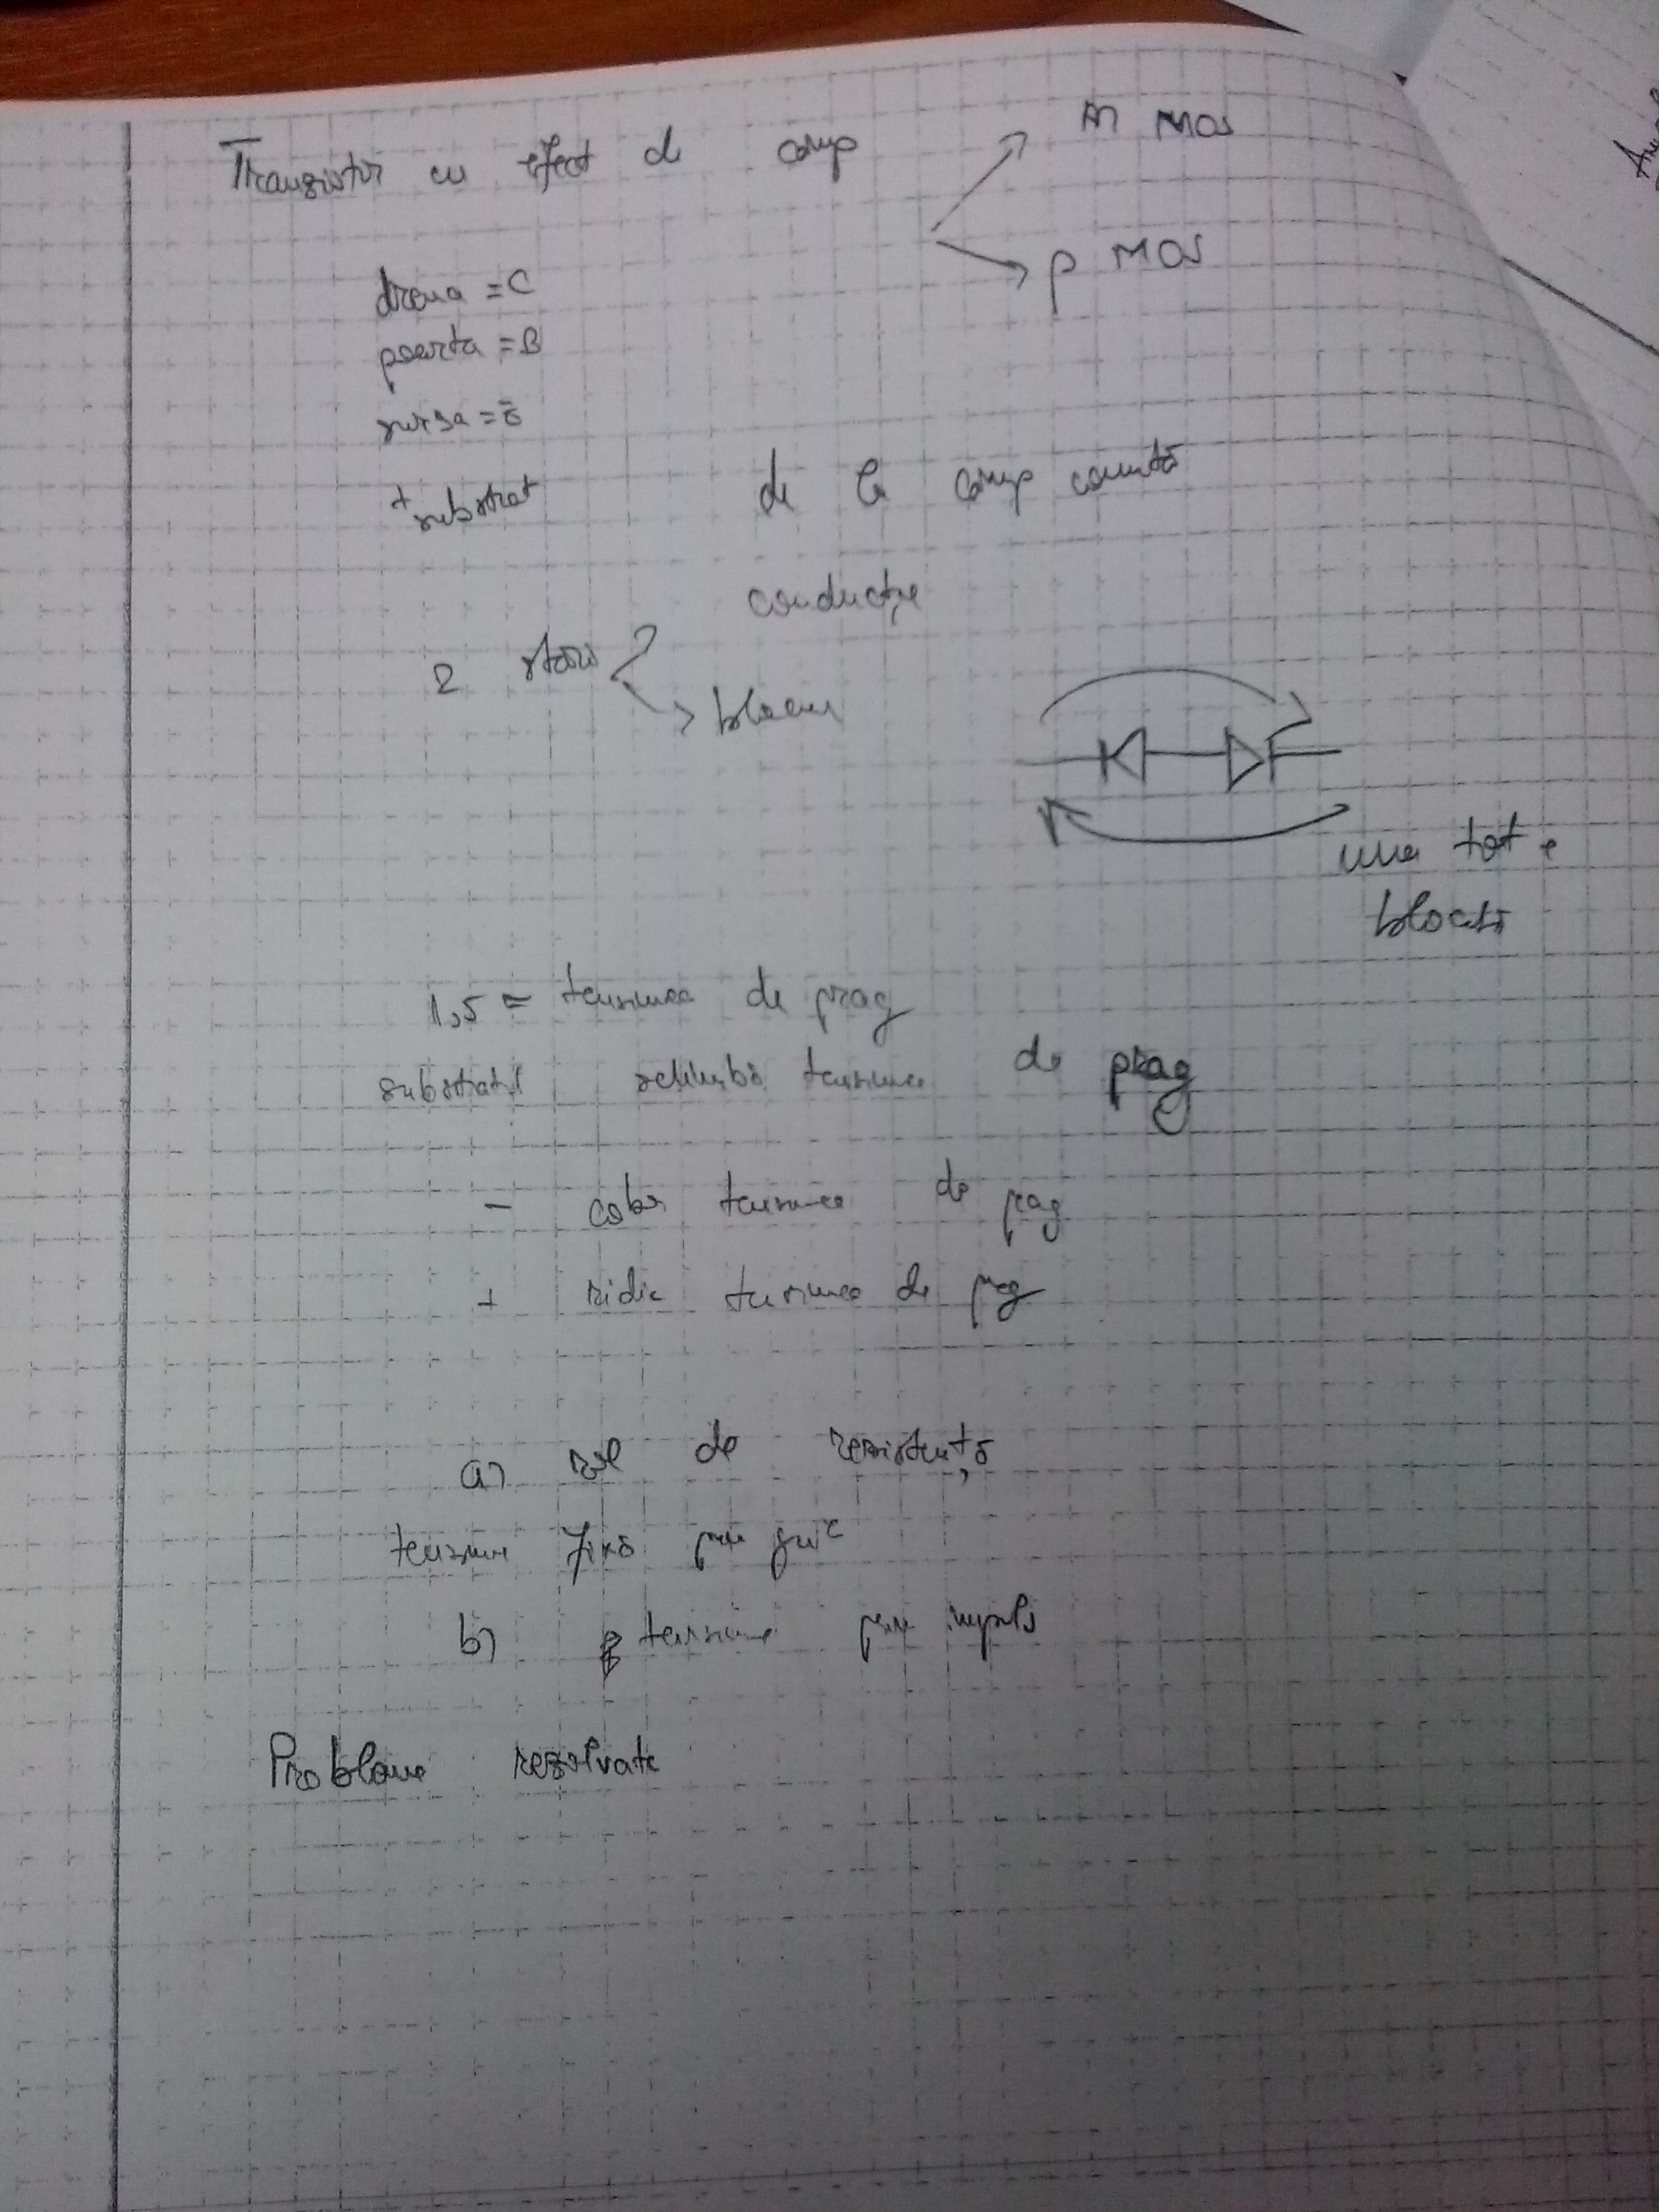 Tranzistor cu efect de câmp
n MOS
p MOS
drena = C
poarta = B
sursa = E
+ substrat
de la câmp comută
2 stări
conducție
blocare
una tot e
blocată
1,5 = tensiunea de prag
substratul schimbă tensiunea de prag
- cobor tensiunea de prag
+ ridic tensiunea de prag
a) rol de rezistență
tensiune fixă pe
b) tensiune pe impuls
Probleme rezolvate